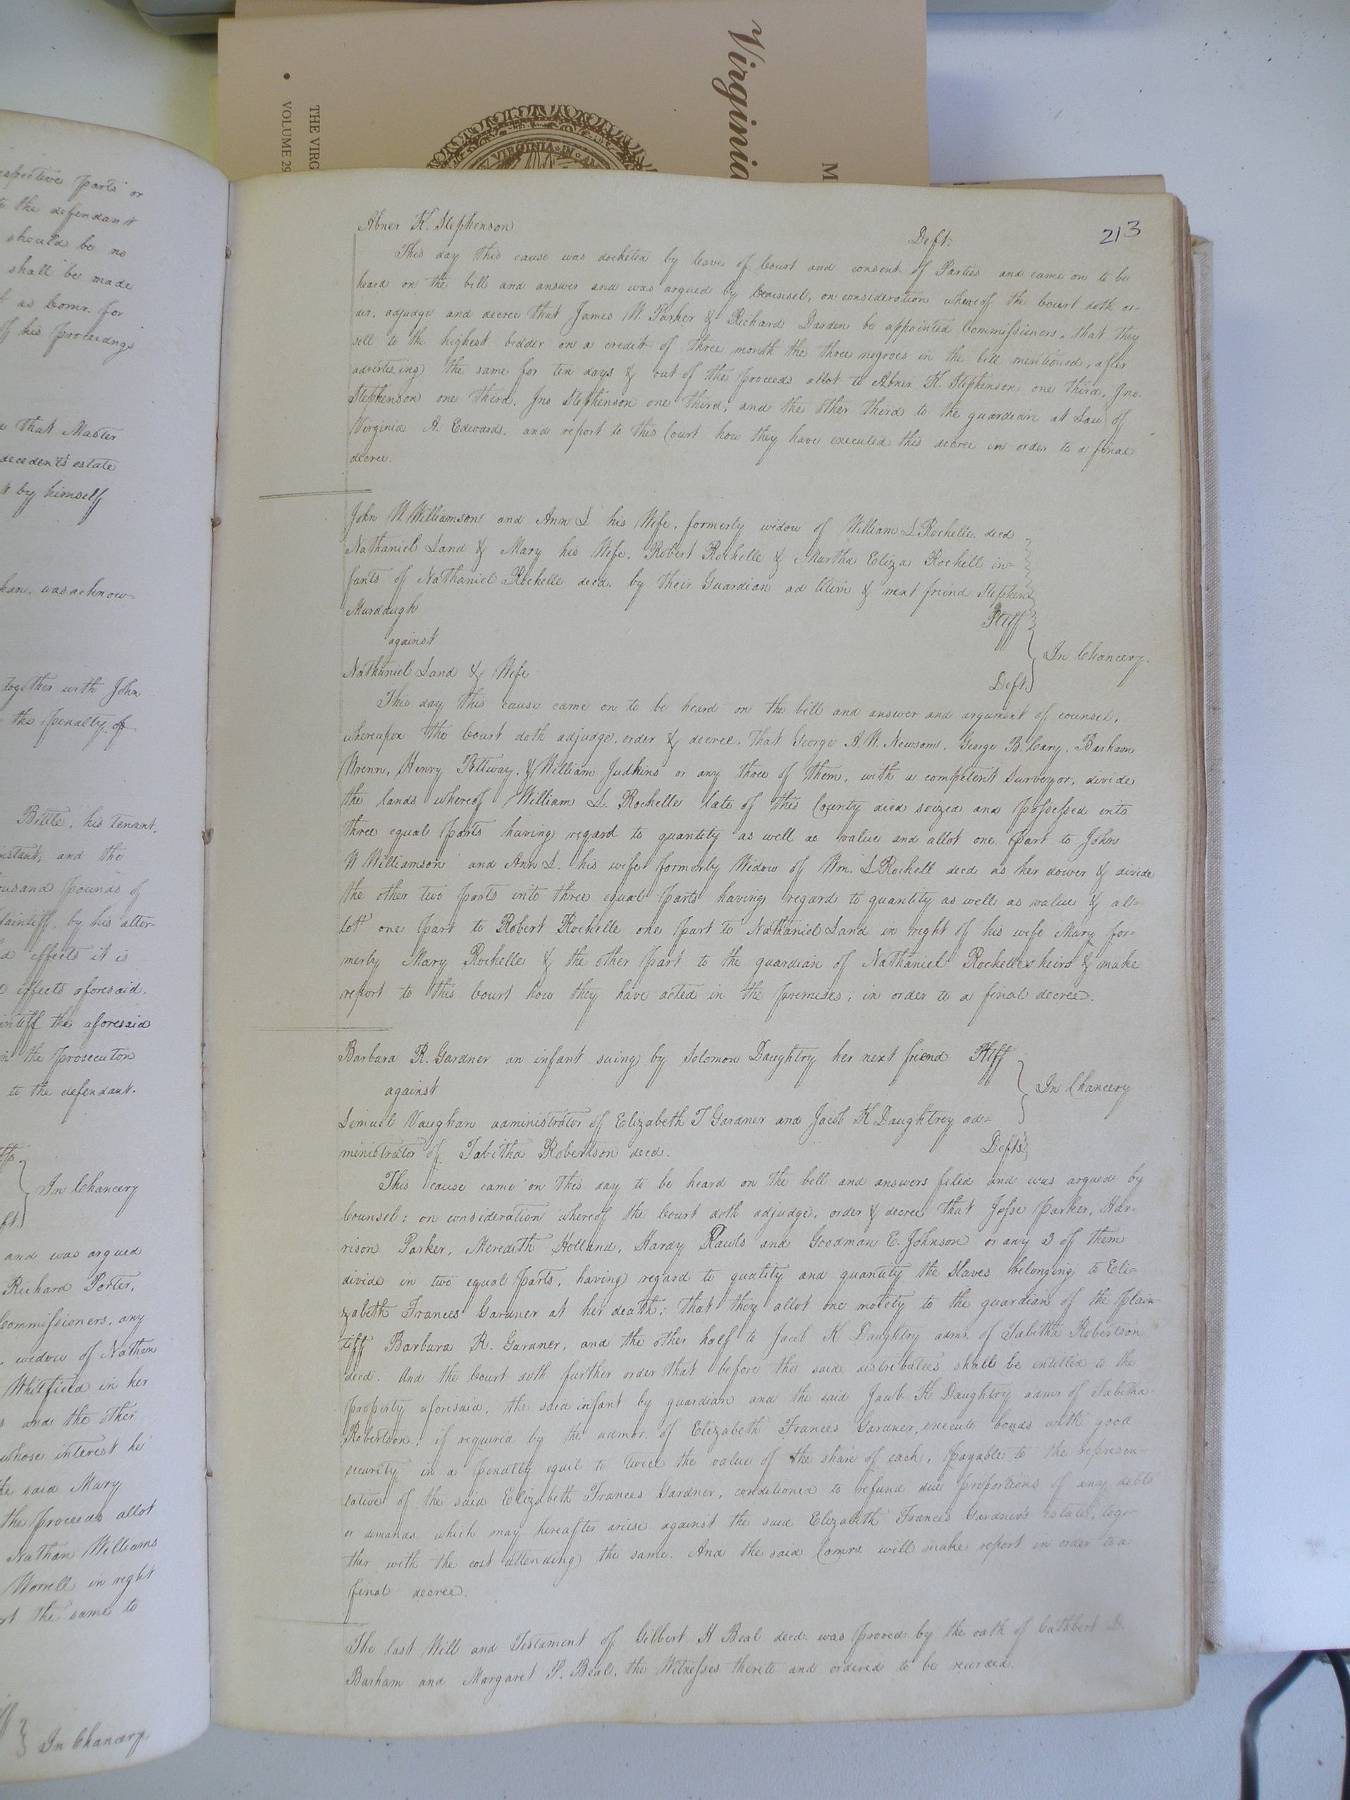 Virginia
M
THE VIRG
VOLUME 29
VIRGINIA IN
espective parts or
to the defendant
should be no
shall be made
t as Comr. for
of his proceedings
e that Master
decedent's estate
t by himself
han, was acknow-
together with John
the penalty of
Bittle, his tenant,
nstant, and the
ousand pounds of
plaintiff, by his attor-
effects it is
effects aforesaid.
intiff the aforesaid
the prosecution
to the defendant.
In Chancery
and was argued
Richard Porter,
Commissioners, any
widow of Nathan
Whitfield in her
and the other
whose interest he
the said Mary
the proceeds allot
Nathan Williams
Worrell in right
rt the same to
In Chancery
213
Abner K. Stephenson Deft.
This day this cause was docketed by leave of Court and consent of Parties and came on to be
heard on the bill and answer and was argued by Counsel, on consideration whereof the Court doth or-
der, adjudge and decree that James W. Parker & Richard Darden be appointed Commissioners, that they
sell to the highest bidder on a credit of three month the three negroes in the bill mentioned, after
advertising the same for ten days & out of the proceeds allot to Abner K. Stephenson one third, Jno.
Stephenson one third, Jno Stephenson one third, and the other third to the guardian at Law of
Virginia A. Edwards, and report to this Court how they have executed this decree in order to a final
decree.
John W Williamson and Ann L his Wife, formerly widow of William L Rochelle decd
Nathaniel Land & Mary his Wife, Robert Rochelle & Martha Eliza Rochell in-
fants of Nathaniel Rochelle decd. by their Guardian ad litim & next friend Stephen
Murdaugh Pltff
against
In Chancery.
Nathaniel Land & Wife Deft.
This day this cause came on to be heard on the bill and answer and argument of counsel,
whereupon the Court doth adjudge, order & decree, that George A. W. Newsom, George B. Cary, Barham
Wrenn, Henry Pettway, & William Judkins or any three of them, with a competent Surveyor, divide
the lands whereof William L. Rochelle late of this County died seized and possessed into
three equal parts having regard to quantity as well as value and allot one part to John
W Williamson and Ann L. his wife formerly Widow of Wm. L Rochell decd as her dower & divide
the other two parts into three equal parts having regard to quantity as well as value & al-
lot one part to Robert Rochelle one part to Nathaniel Land in right of his wife Mary for-
merly Mary Rochelle & the other part to the guardian of Nathaniel Rochelle's heirs & make
report to this Court how they have acted in the premises, in order to a final decree.
Barbara R. Gardner an infant suing by Solomon Daughtry her next friend Pltff
against
In Chancery
Lemuel Vaughan administrator of Elizabeth T Gardner and Jacob K Daughtrey ad-
ministrator of Tabitha Robertson decd. Defts.
This cause came on this day to be heard on the bill and answers filed and was argued by
Counsel: on consideration whereof the Court doth adjudge, order & decree that Josse Parker, Har-
rison Parker, Meredith Holland, Hardy Rawls and Goodman E. Johnson or any 3 of them
divide in two equal parts, having regard to quality and quantity the slaves belonging to Eli-
zabeth Frances Gardner at her death: that they allot one moiety to the guardian of the plain-
tiff Barbara R. Gardner, and the other half to Jacob K Daughtry admr. of Tabitha Robertson
decd. And the Court doth further order that before the said distributees shall be entitled to the
property aforesaid, the said infant by guardian and the said Jacob K Daughtry admr of Tabitha
Robertson; if required by the admor. of Elizabeth Frances Gardner, execute bonds with good
security in a penalty equil to twice the value of the share of each, payable to the represen-
tative of the said Elizabeth Frances Gardner, conditioned to refund due proportions of any debts
or demands which may hereafter arise against the said Elizabeth Frances Gardner's estate, toge-
ther with the cost attending the same. And the said Comrs will make report in order to a
final decree.
The last Will and Testament of Gilbert H Beal decd. was proved by the oath of Cuthbert D.
Barham and Margaret P. Beal, the Witnesses thereto and ordered to be recorded.